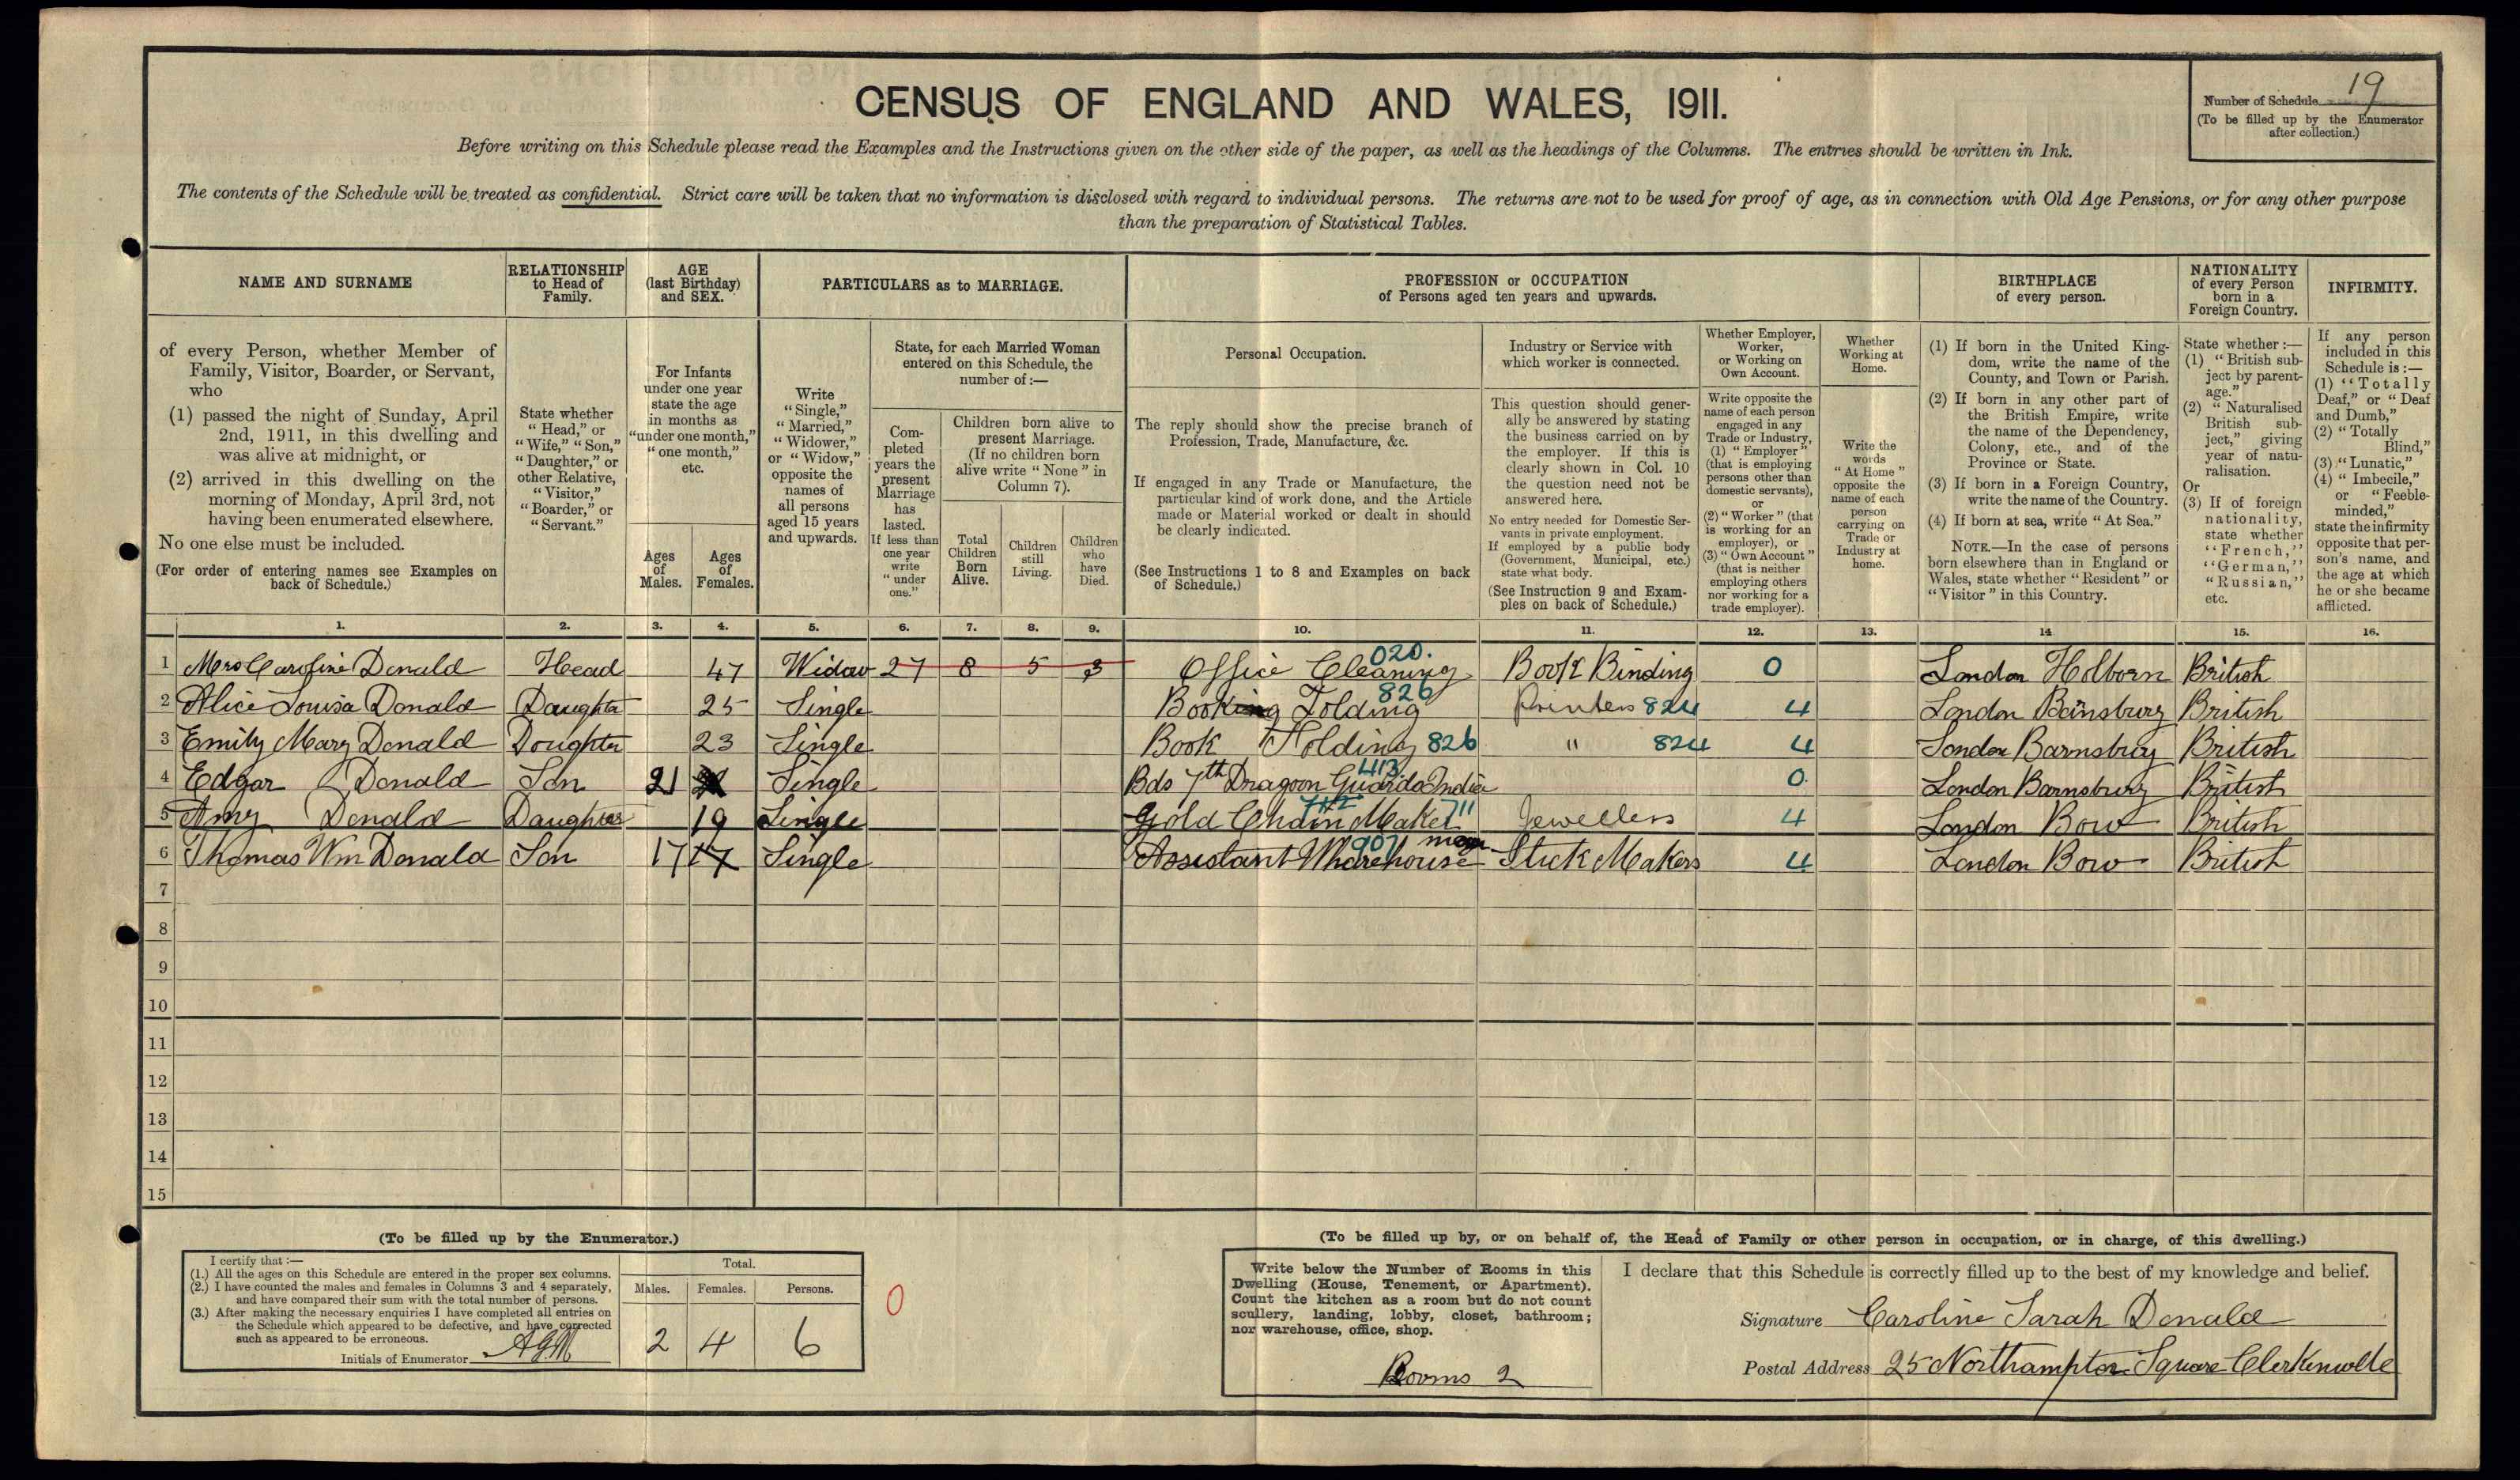 CENSUS OF ENGLAND AND WALES, 1911.
Number of Schedule 19
(To be filled up by the Enumerator
after collection.)
Before writing on this Schedule please read the Examples and the Instructions given on the other side of the paper, as well as the headings of the Columns. The entries should be written in Ink.
The contents of the Schedule will be treated as confidential. Strict care will be taken that no information is disclosed with regard to individual persons. The returns are not to be used for proof of age, as in connection with Old Age Pensions, or for any other purpose
than the preparation of Statistical Tables.
NAME AND SURNAME
of every Person, whether Member of
Family, Visitor, Boarder, or Servant,
who
(1) passed the night of Sunday, April
2nd, 1911, in this dwelling and
was alive at midnight, or
(2) arrived in this dwelling on the
morning of Monday, April 3rd, not
having been enumerated elsewhere.
No one else must be included.
(For order of entering names see Examples on
back of Schedule.)
RELATIONSHIP
to Head of
Family.
State whether
"Head," or
"Wife," "Son,"
"Daughter," or
other Relative,
"Visitor,"
"Boarder," or
"Servant."
AGE
(last Birthday)
and SEX.
For Infants
under one year
state the age
in months as
"under one month,"
"one month,"
etc.
Ages
of
Males.
Ages
of
Females.
PARTICULARS as to MARRIAGE.
Write
"Single,"
"Married,"
"Widower,"
or "Widow,"
opposite the
names of
all persons
aged 15 years
and upwards.
State, for each Married Woman
entered on this Schedule, the
number of:—
Com-
pleted
years the
present
Marriage
has
lasted.
If less than
one year
write
"under
one."
Children born alive to
present Marriage.
(If no children born
alive write "None" in
Column 7).
Total
Children
Born
Alive.
Children
still
Living.
Children
who
have
Died.
PROFESSION or OCCUPATION
of Persons aged ten years and upwards.
Personal Occupation.
The reply should show the precise branch of
Profession, Trade, Manufacture, &c.
If engaged in any Trade or Manufacture, the
particular kind of work done, and the Article
made or Material worked or dealt in should
be clearly indicated.
(See Instructions 1 to 8 and Examples on back
of Schedule.)
Industry or Service with
which worker is connected.
This question should gener-
ally be answered by stating
the business carried on by
the employer. If this is
clearly shown in Col. 10
the question need not be
answered here.
No entry needed for Domestic Ser-
vants in private employment.
If employed by a public body
(Government, Municipal, etc.)
state what body.
(See Instruction 9 and Exam-
ples on back of Schedule.)
Whether Employer,
Worker,
or Working on
Own Account.
Write opposite the
name of each person
engaged in any
Trade or Industry,
(1) "Employer"
(that is employing
persons other than
domestic servants),
or
(2) "Worker" (that
is working for an
employer), or
(3) "Own Account"
(that is neither
employing others
nor working for a
trade employer).
Whether
Working at
Home.
Write the
words
"At Home"
opposite the
name of each
person
carrying on
Trade or
Industry at
home.
BIRTHPLACE
of every person.
(1) If born in the United King-
dom, write the name of the
County, and Town or Parish.
(2) If born in any other part of
the British Empire, write
the name of the Dependency,
Colony, etc., and of the
Province or State.
(3) If born in a Foreign Country,
write the name of the Country.
(4) If born at sea, write "At Sea."
NOTE.—In the case of persons
born elsewhere than in England or
Wales, state whether "Resident" or
"Visitor" in this Country.
NATIONALITY
of every Person
born in a
Foreign Country.
State whether:—
(1) "British sub-
ject by parent-
age."
(2) "Naturalised
British sub-
ject," giving
year of natu-
ralisation.
Or
(3) If of foreign
nationality,
state whether
"French,"
"German,"
"Russian,"
etc.
INFIRMITY.
If any person
included in this
Schedule is:—
(1) "Totally
Deaf," or "Deaf
and Dumb,"
(2) "Totally
Blind,"
(3) "Lunatic,"
(4) "Imbecile,"
or "Feeble-
minded,"
state the infirmity
opposite that per-
son's name, and
the age at which
he or she became
afflicted.
1. 2. 3. 4. 5. 6. 7. 8. 9. 10. 11. 12. 13. 14 15. 16.
1 Mrs Caroline Donald Head 47 Widow 27 8 5 3 Office Cleaning 020. Book Binding 0 London Holborn British
2 Alice Louisa Donald Daughter 25 Single Booking Folding 826 Printers 824 4 London British
3 Emily Mary Donald Doughter 23 Single Book Folding 826 " 824 4 London Barnsbury British
4 Edgar Donald Son 21 Single Bds 7th Dragoon Guards India 413. 0. London Barnsbury British
5 Amy Donald Daughter 19 Single Gold Chain Maker 711 Jewellers 4 London Bow British
6 Thomas Wm Donald Son 17 17 Single Assistant Wharehouse man 907 Stick Makers 4 London Bow British
7
8
9
10
11
12
13
14
15
(To be filled up by the Enumerator.)
I certify that:—
(1.) All the ages on this Schedule are entered in the proper sex columns.
(2.) I have counted the males and females in Columns 3 and 4 separately,
and have compared their sum with the total number of persons.
(3.) After making the necessary enquiries I have completed all entries on
the Schedule which appeared to be defective, and have corrected
such as appeared to be erroneous.
Initials of Enumerator
Total.
Males. Females. Persons.
2 4 6
0
(To be filled up by, or on behalf of, the Head of Family or other person in occupation, or in charge, of this dwelling.)
Write below the Number of Rooms in this
Dwelling (House, Tenement, or Apartment).
Count the kitchen as a room but do not count
scullery, landing, lobby, closet, bathroom;
nor warehouse, office, shop.
Rooms 2
I declare that this Schedule is correctly filled up to the best of my knowledge and belief.
Signature Caroline Sarah Donald
Postal Address 25 Northampton Square Clerkenwelle